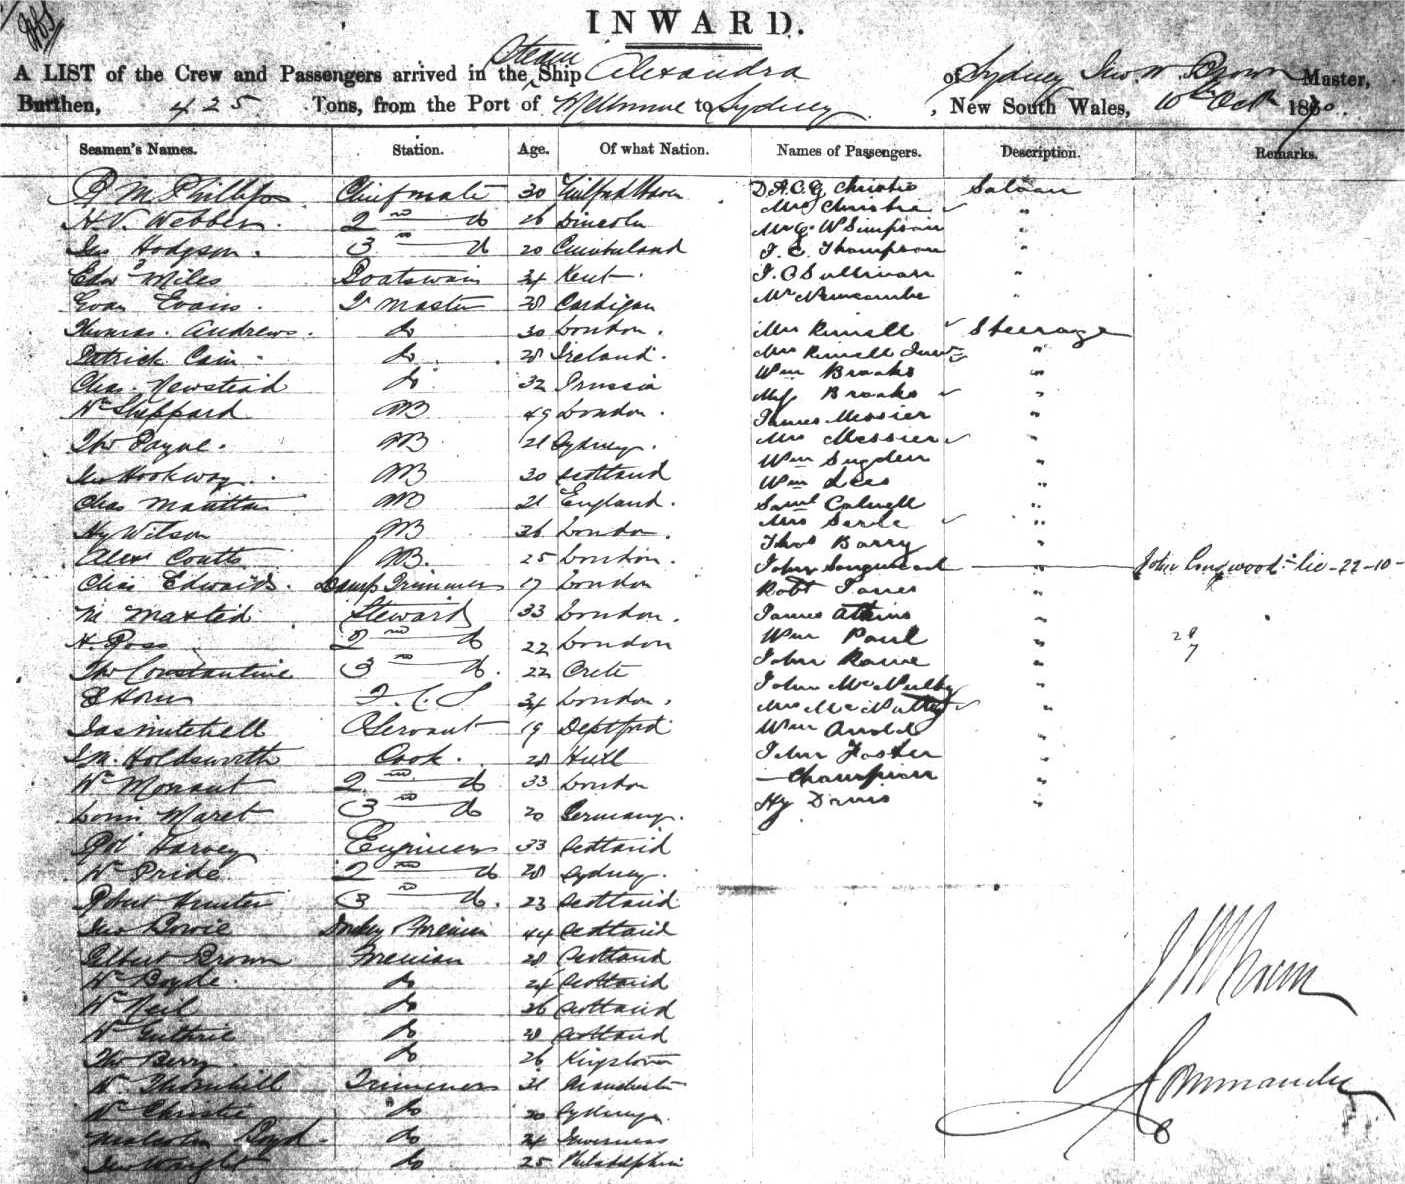 INWARD.
A LIST of the Crew and Passengers arrived in the Steam Ship Alexandra of Sydney Jno W. Brown Master,
Burthen, 425 Tons, from the Port of Melbourne to Sydney, New South Wales, 10th Octr 1870
Seamen's Names. Station. Age. Of what Nation. Names of Passengers. Description. Remarks.
Chief mate 30 Milford Haven D.A.C.G Christie Saloon
H.V. Webber. 2nd do 26 Lincoln Mrs Christie "
Jas Hodgson. 3rd do 20 Cumberland Mr G. W Simpson "
Edwd Miles Boatswain 34 Kent. J. E. Thompson "
Evan Evans. Qr Master 38 Cardigan J. O Sullivan "
Mr Newcombe "
Thomas. Andrews. do 30 London. Mrs Steerage
Patrick Cain. do. 28 Ireland. Mrs "
Chas. Newstead do 32 Prussia Wm Brooks "
Wm Sheppard AB 49 London. Brooks "
Tho Payne. AB 21 Sydney. James Messier "
Mrs Messier "
Jno Hookway. AB 30 Scotland Wm Sugden "
Wm Lees "
Chas AB 21 England. Saml "
Hy Wilson AB 36 London. Mrs Serle "
Alexr Coutts AB. 25 London. Thos Barry "
Chas Edwards. Lamp Trimmer 17 London John Longwood John Longwood: lie-22-10-
Robt Jones "
Maxted Steward 33 London. James Atkins "
H. Ross 2nd do 22 London Wm Paul " 28
7
Tho Constantine 3rd do. 22 Crete John Rowe "
E Horn F. C. S 34 London. John McNulty "
Mrs McNulty "
Jas Mitchell O Servant 19 Deptford Wm "
J.M. Holdsworth Cook. 28 Hull John Foster "
Wm Morrant 2nd do 33 London — Champion "
Louis Maret 3rd do 20 Germany. Hy Davis "
Robt Harvey Engineer 33 Scotland
Wm Pride 2nd do 28 Sydney.
Robert Hunter 3rd do. 23 Scotland
Jno Bowie Donkey Fireman 44 Scotland
Albert Brown Fireman 28 Scotland
Wm Boyde. do 24 Scotland
Wm Neil do 26 Scotland
Wm Guthrie do 28 Scotland
Tho Berry do 26 Kingstown
W. Thornhill Trimmers 31 Manchester
Wm Christie " do 20 Sydney
Malcolm Boyd. do 24 Inverness
Jno Waight do 25 Philadelphia
J W Brown
Commander